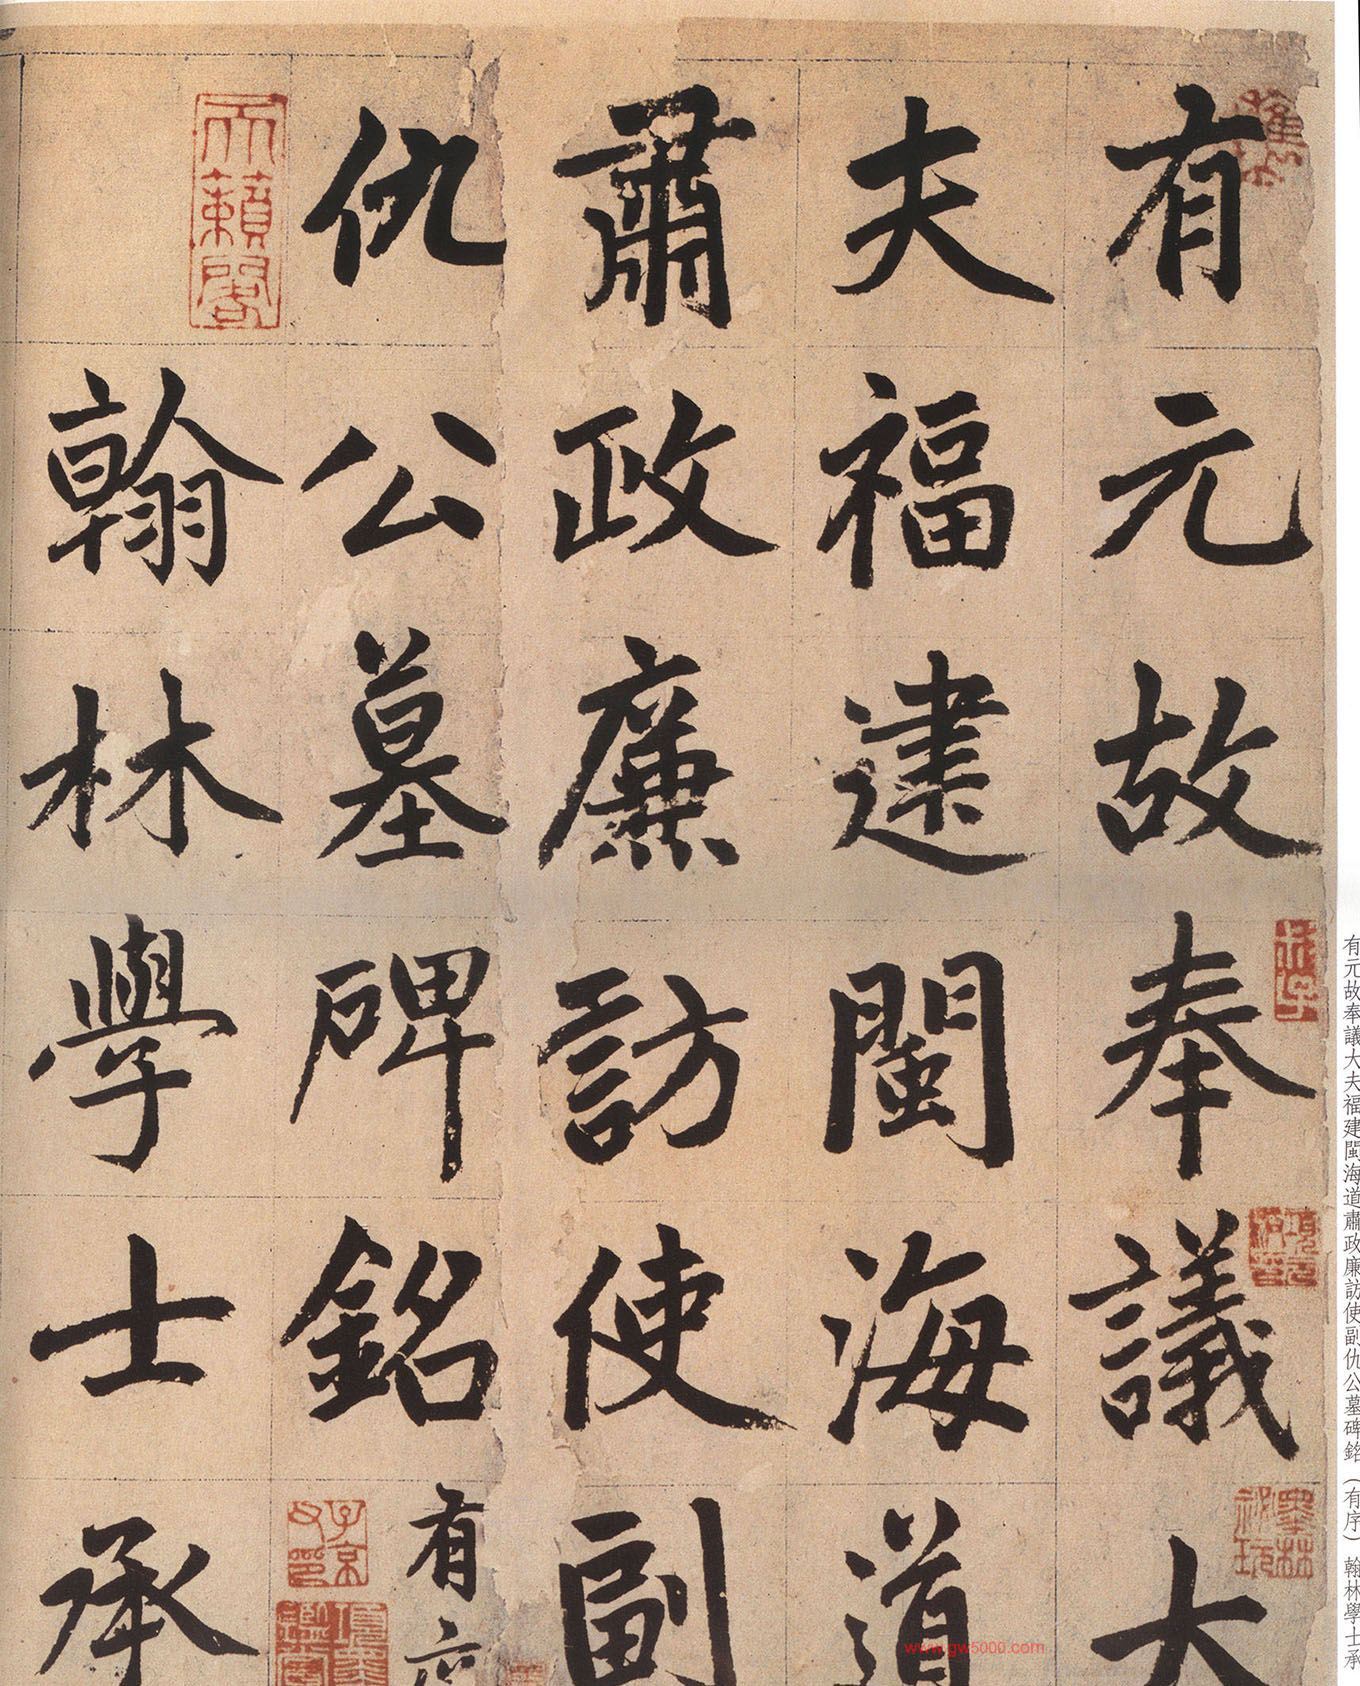 有元故奉議大
夫福建閩海道
肅政廉訪使副
仇公墓碑銘有序
翰林學士承
天籟閣
子京父印
項元汴印
墨林祕玩
有元故奉議大夫福建閩海道肅政廉訪使副仇公墓碑銘（有序）翰林學士承
www.gw5000.com